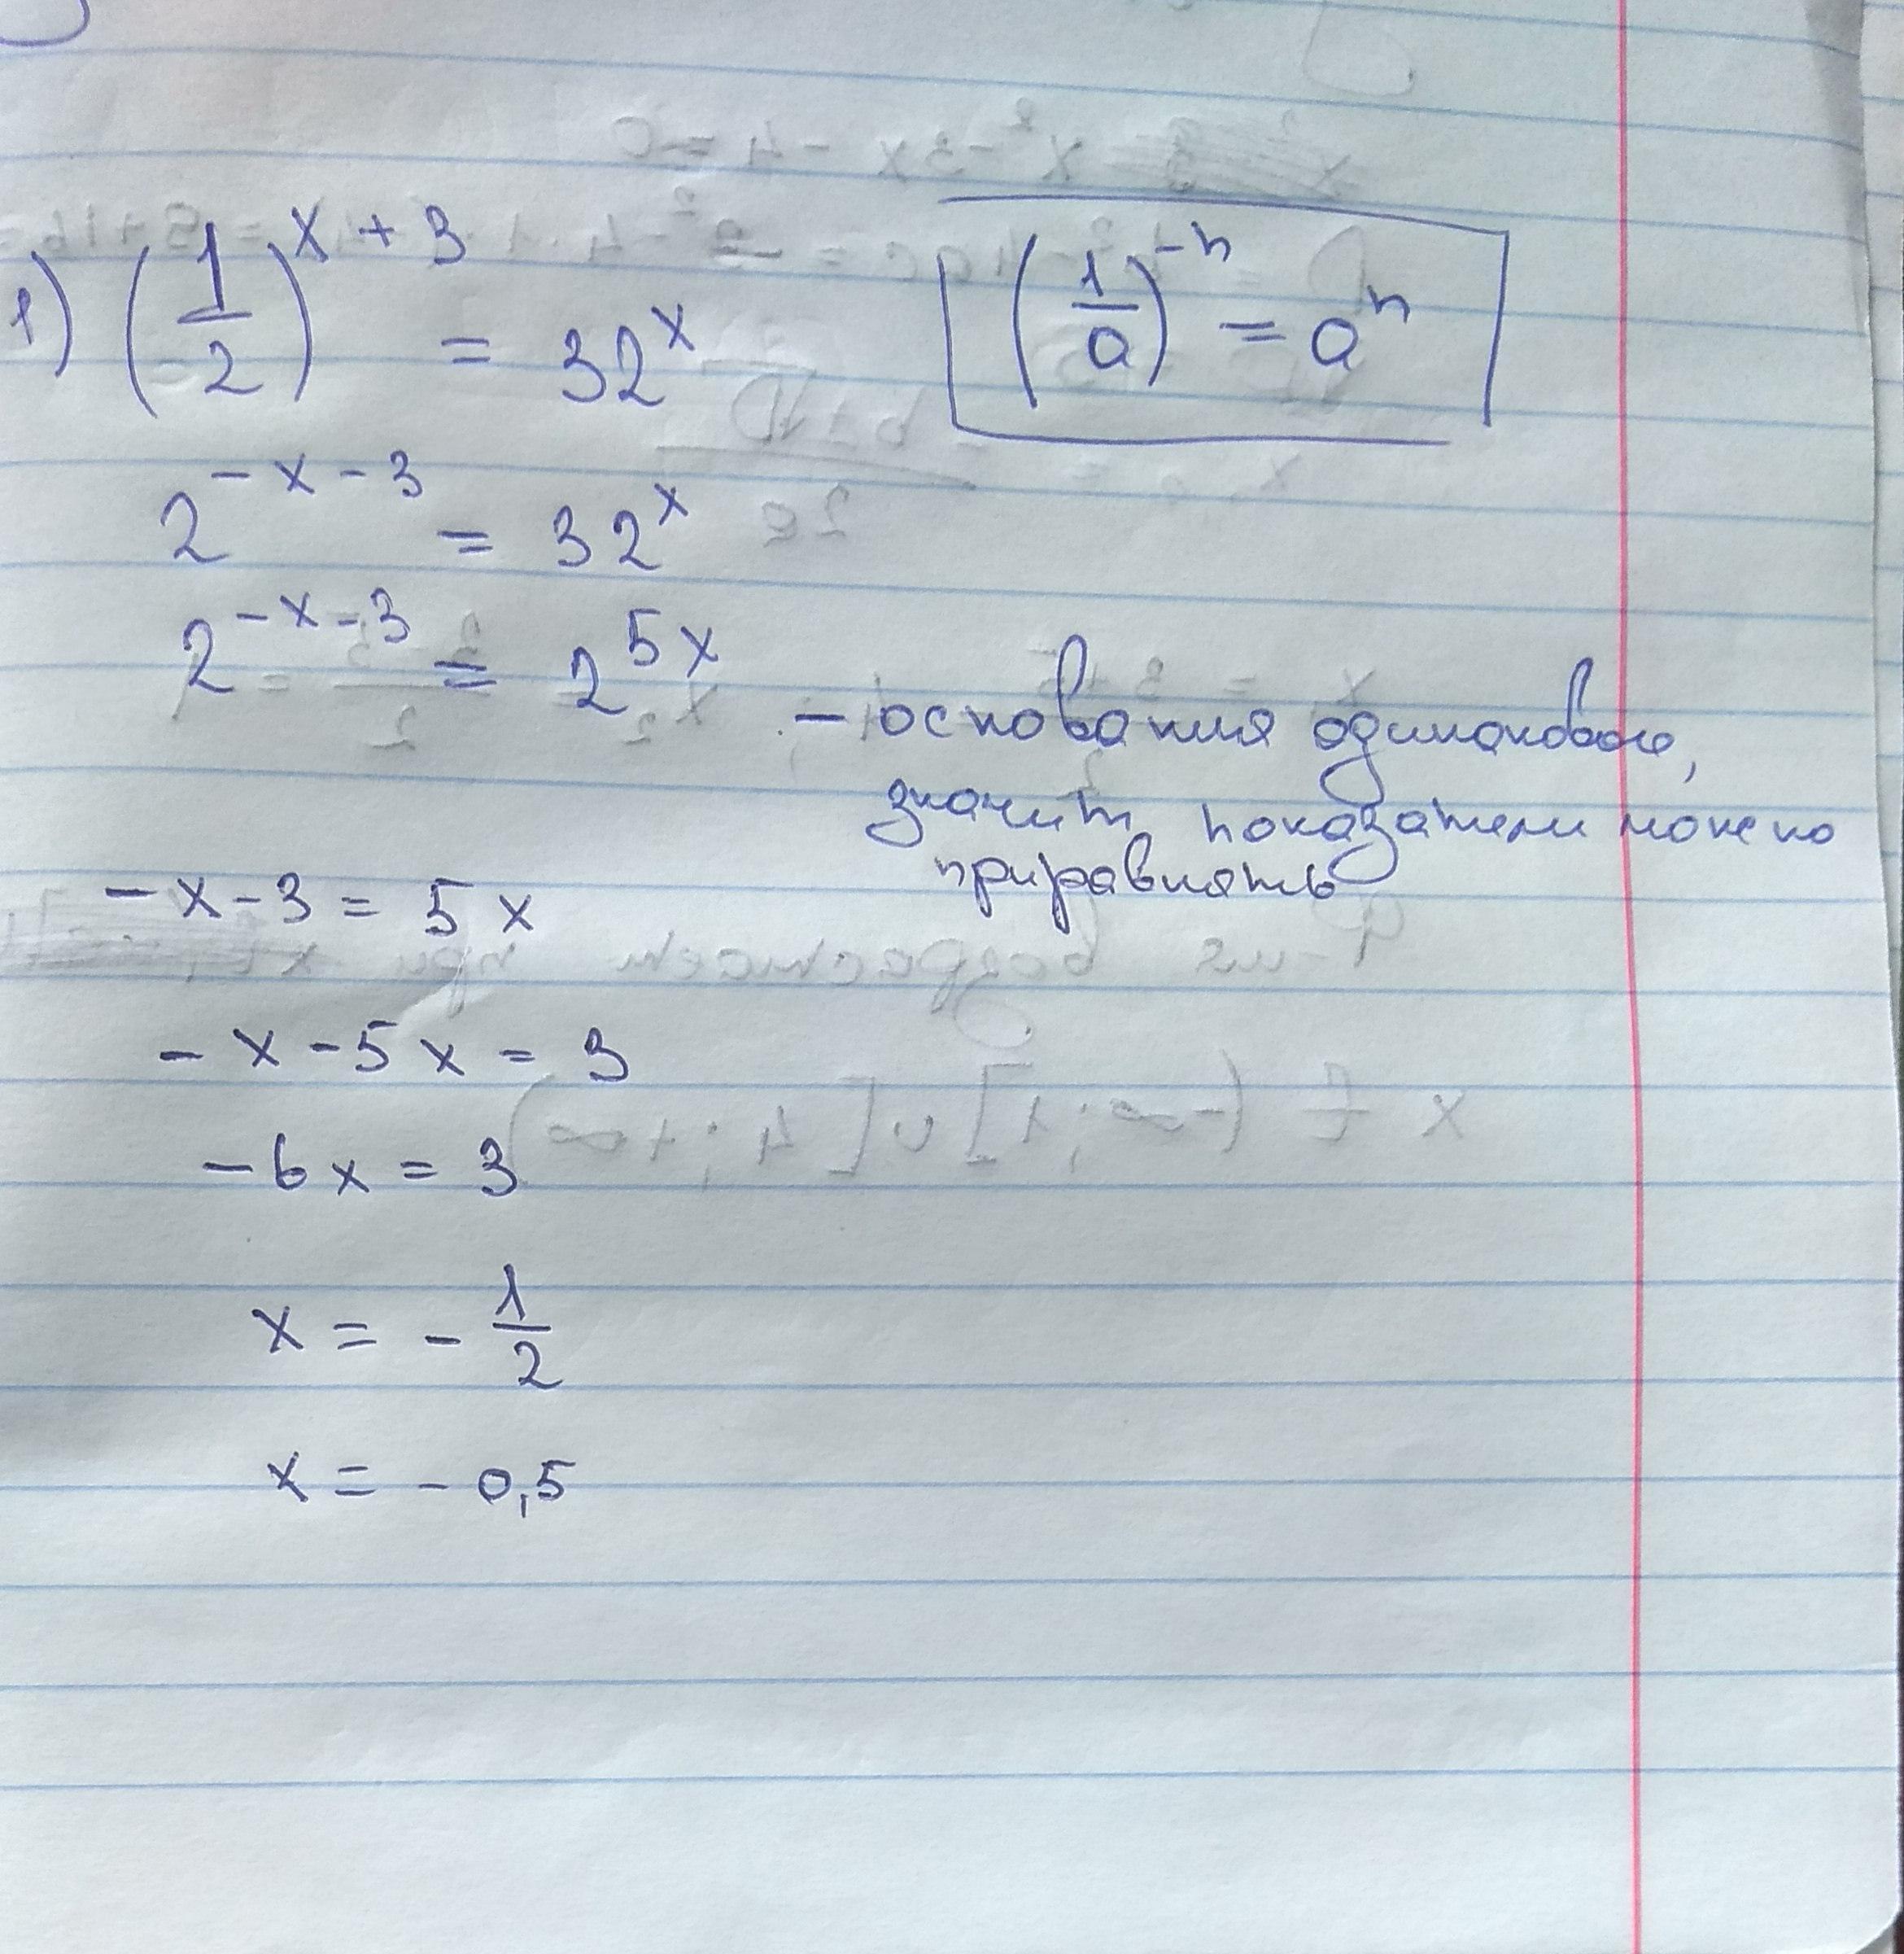 1) (1/2)^(x+3) = 32^x
(1/a)^(-n) = a^n
2^(-x-3) = 32^x
2^(-x-3) = 2^(5x)
- основания одинаковые,
значит, показатели можно
приравнять
-x-3 = 5x
-x-5x = 3
-6x = 3
x = -1/2
x = -0,5